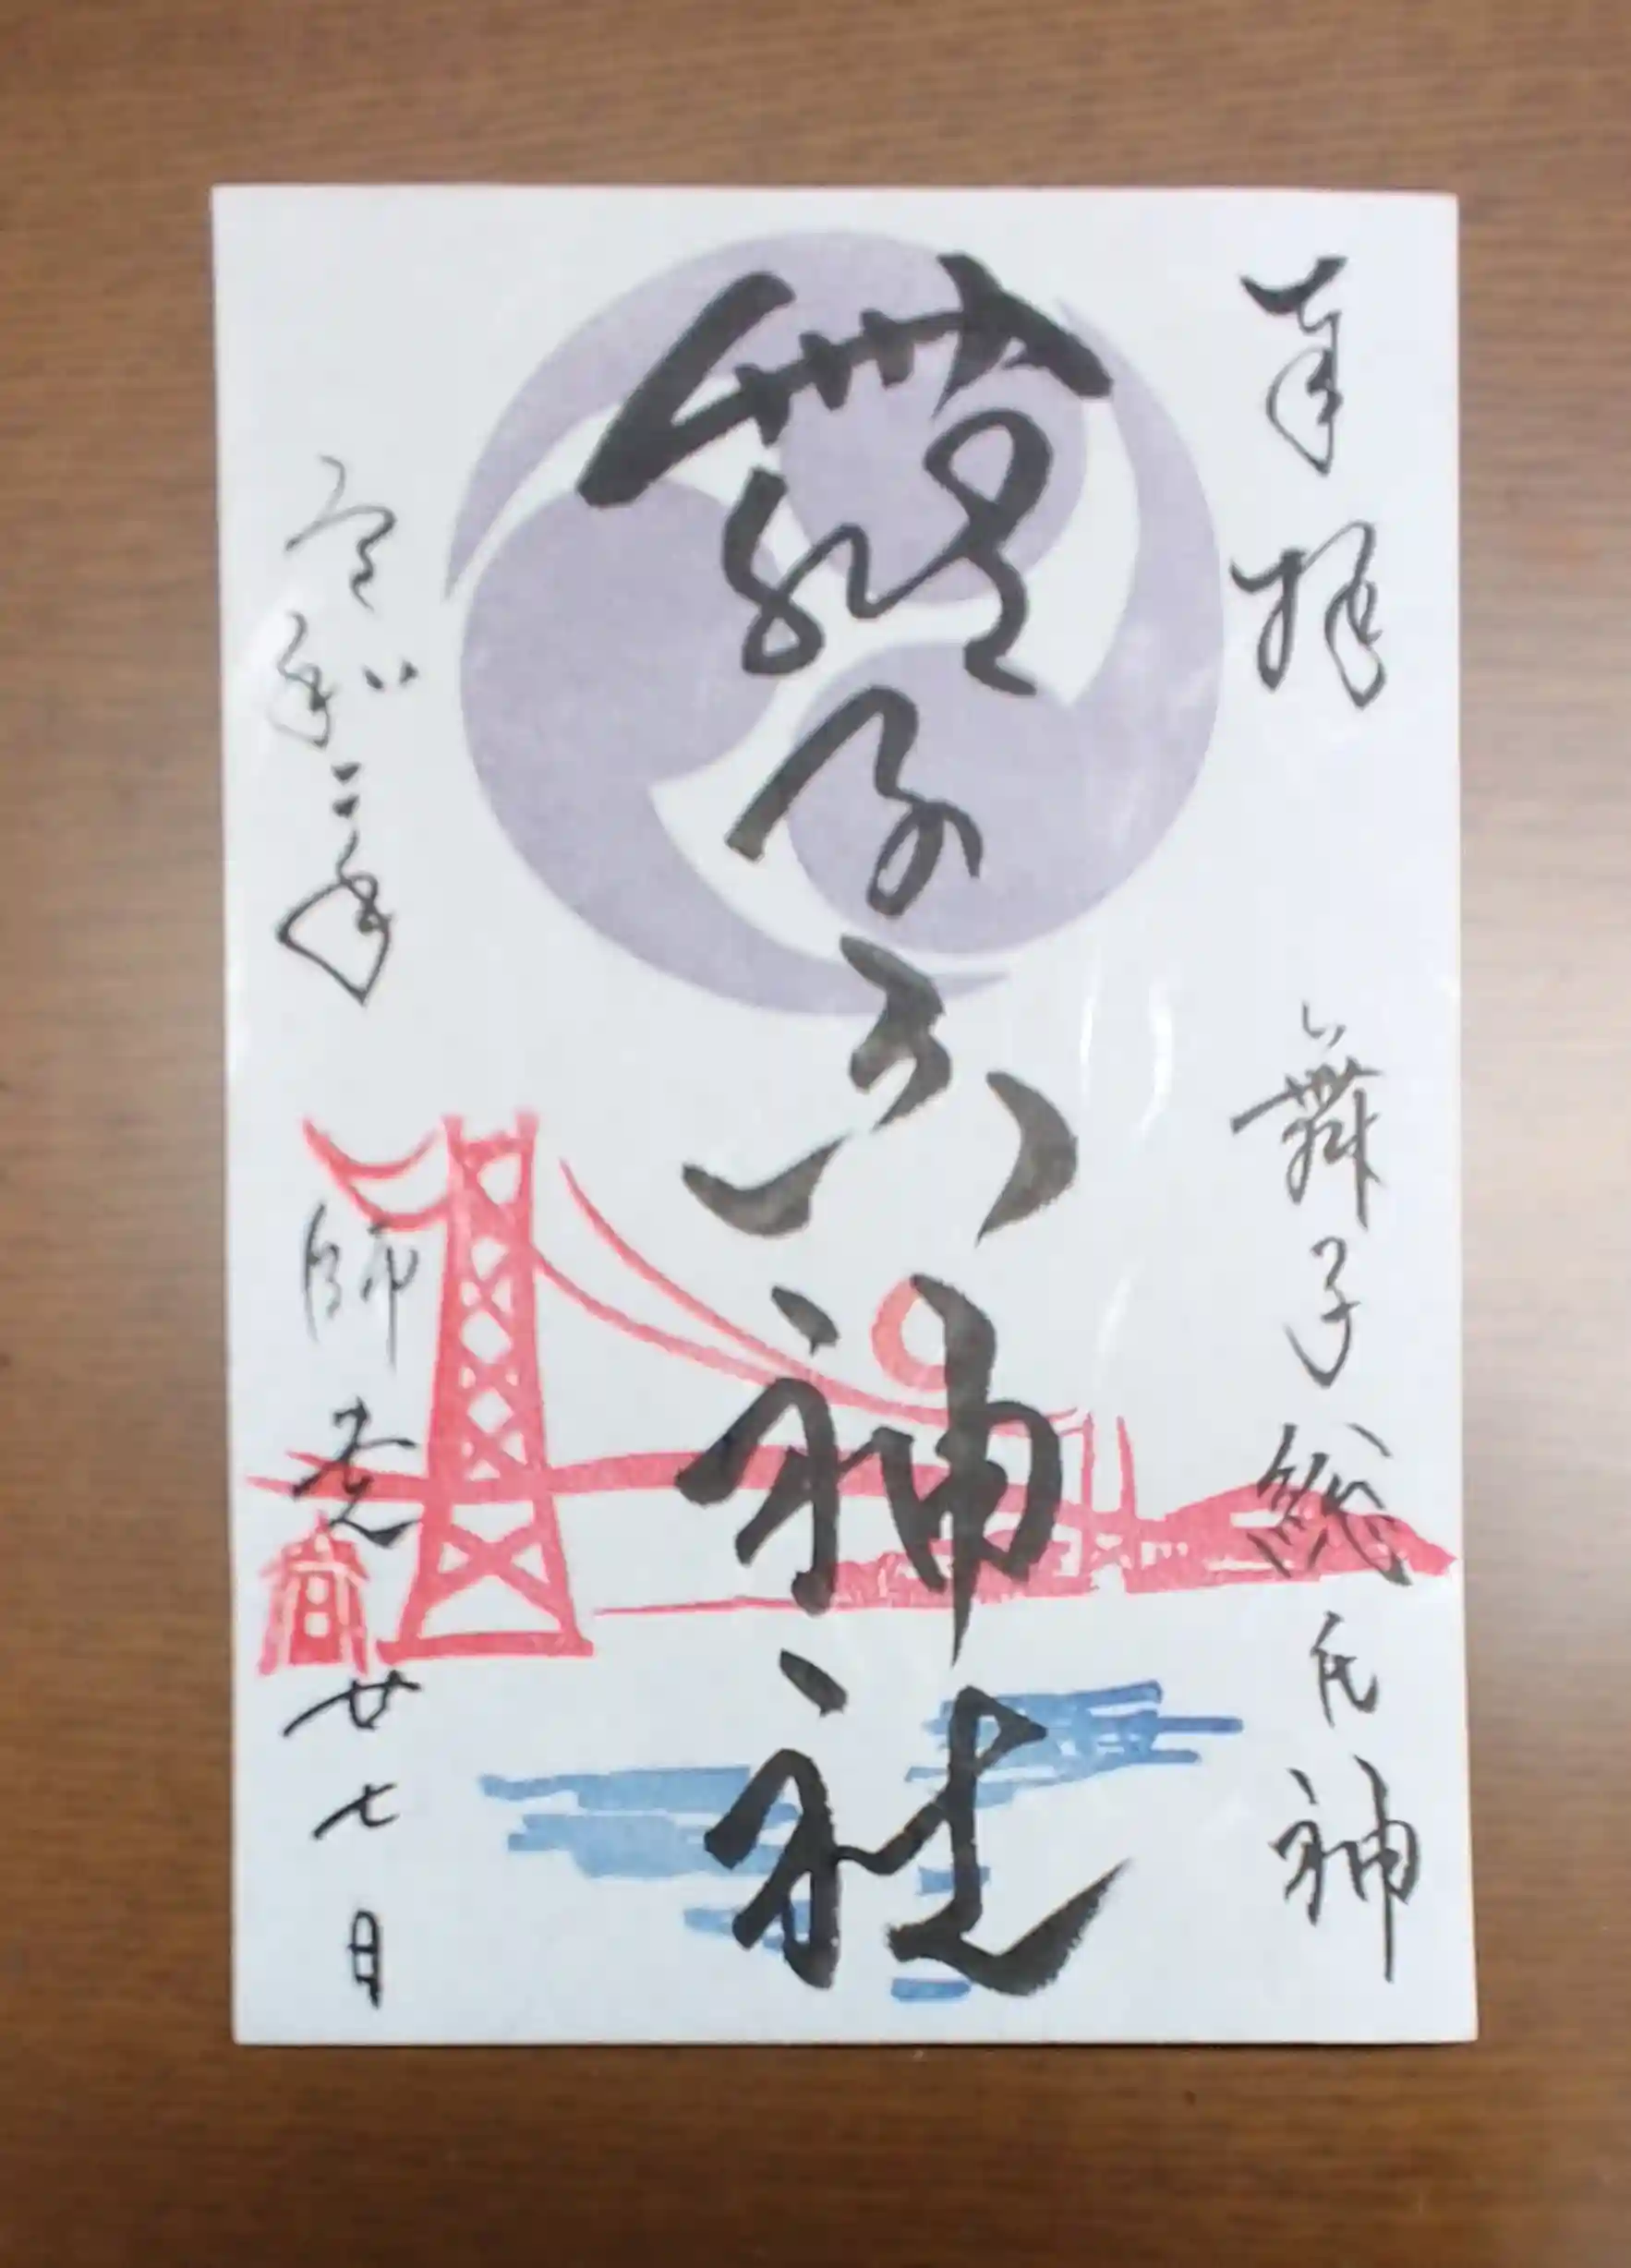 奉拝
舞子総氏神
舞子六神社
令和二年
師走
廿七日